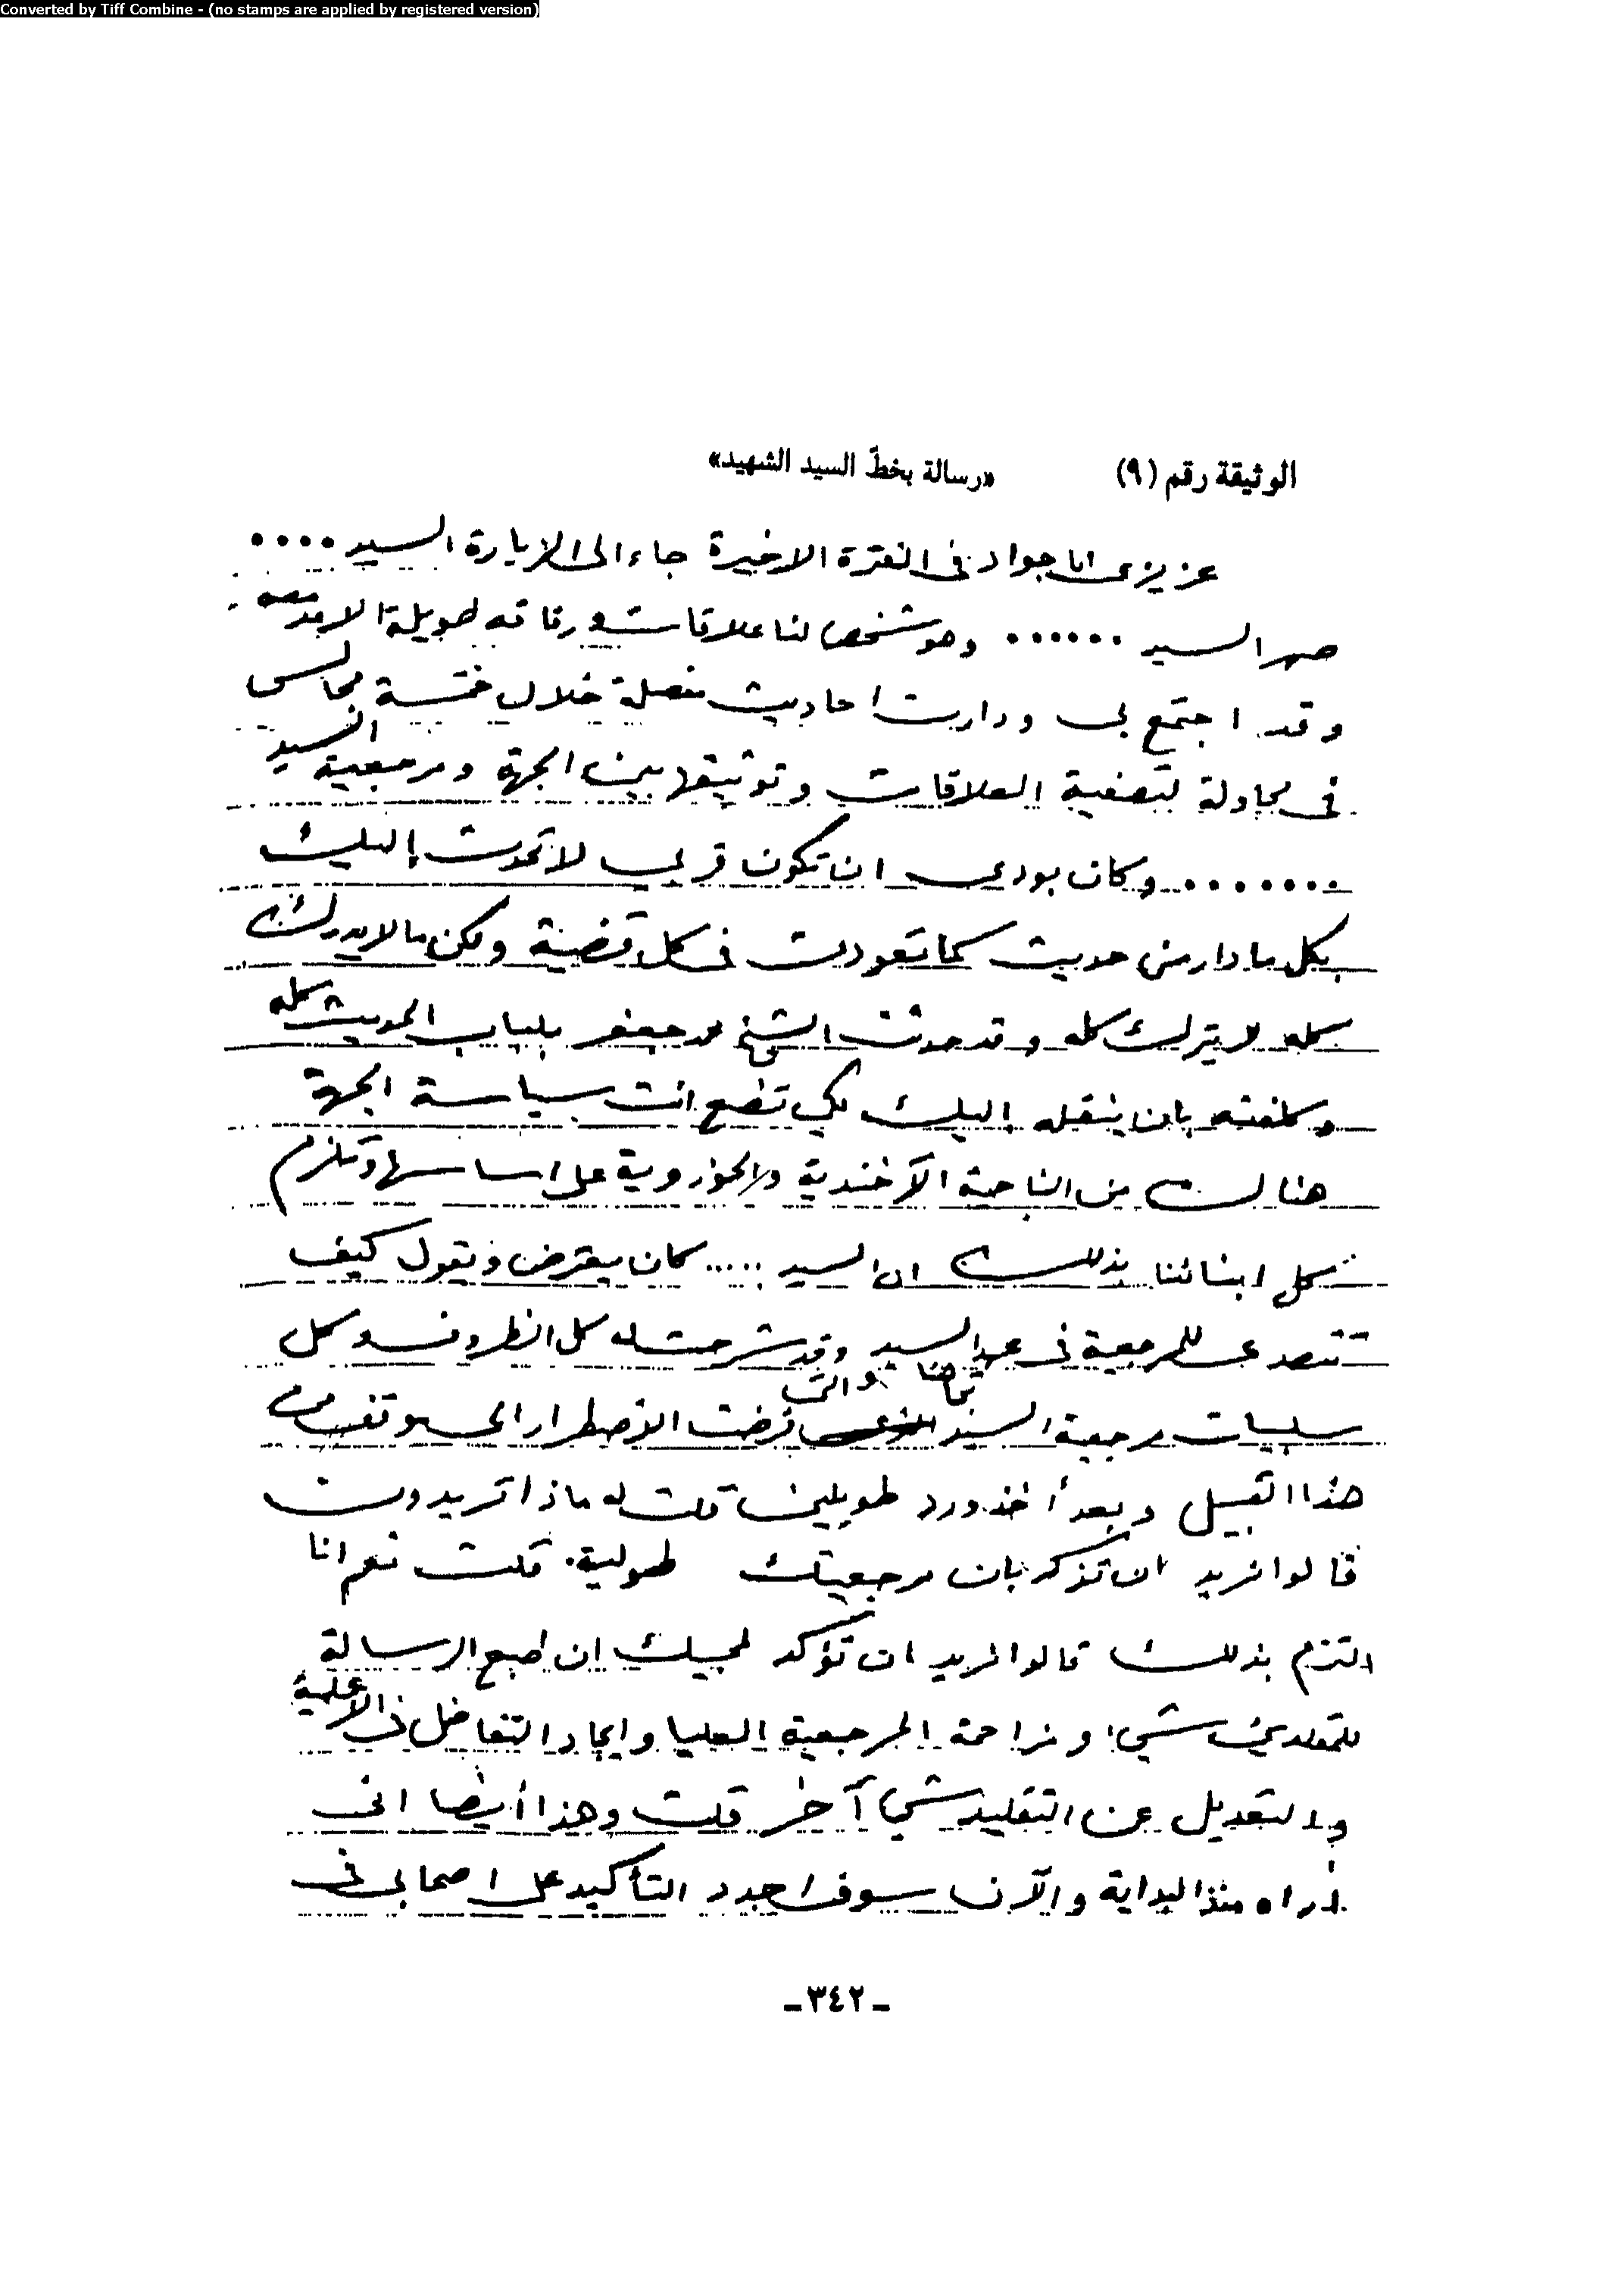 Converted by Tiff Combine - (no stamps are applied by registered version)
الوثيقة رقم (٩) «رسالة بخطّ السيد الشهيد»
عزيزي ابا جواد في الفترة الاخيرة جاء الى الزيارة السيد ....
صهر السيد ...... وهو شخص لنا علاقات ورفاقه طويلة الامد معه
وقد اجتمع بي ودارت احاديث مفصلة خلال خمسة مجالس
في محاولة لتصفية العلاقات وتوثيقها بين الجهة ومرجعية السيد
....... وكان بودي ان تكون قربي لاتحدث إليك
بكل ما دار من حديث كما تعودت في كل قضية ولكن ما لا يدرك
كله لا يترك كله وقد حدثت الشيخ محمد جعفر بلباب الحديث كله
وكلفته بان ينقله إليك لكي تضع انت سياسة الجهة
هنالك من الناحية الآخندية والحوزوية على اساسها وتلزم
كل ابنائنا بذلك ان السيد ..... كان يعترض ويقول كيف
تتصدى للمرجعية في عهد السيد وقد شرحت له كل الظروف وكل
سلبيات مرجعية السيد والتي فرضت الاضطرار الى موقف من
هذا القبيل وبعد أخذ ورد طويلين قلت له ماذا تريدون
قالوا نريد ان تذكر بان مرجعيتك طولية. قلت نعم انا
التزم بذلك قالوا نريد ان تؤكد لمحبيك ان طبع الرسالة
للمقلدين شيء ومزاحمة المرجعية العليا وايجاد التفاضل في الاعلمية
والتعديل عن التقليد شيء آخر قلت وهذا أيضا انى
اراه منذ البداية والآن سوف اجدد التأكيد على اصحابي في
-٣٤٢-